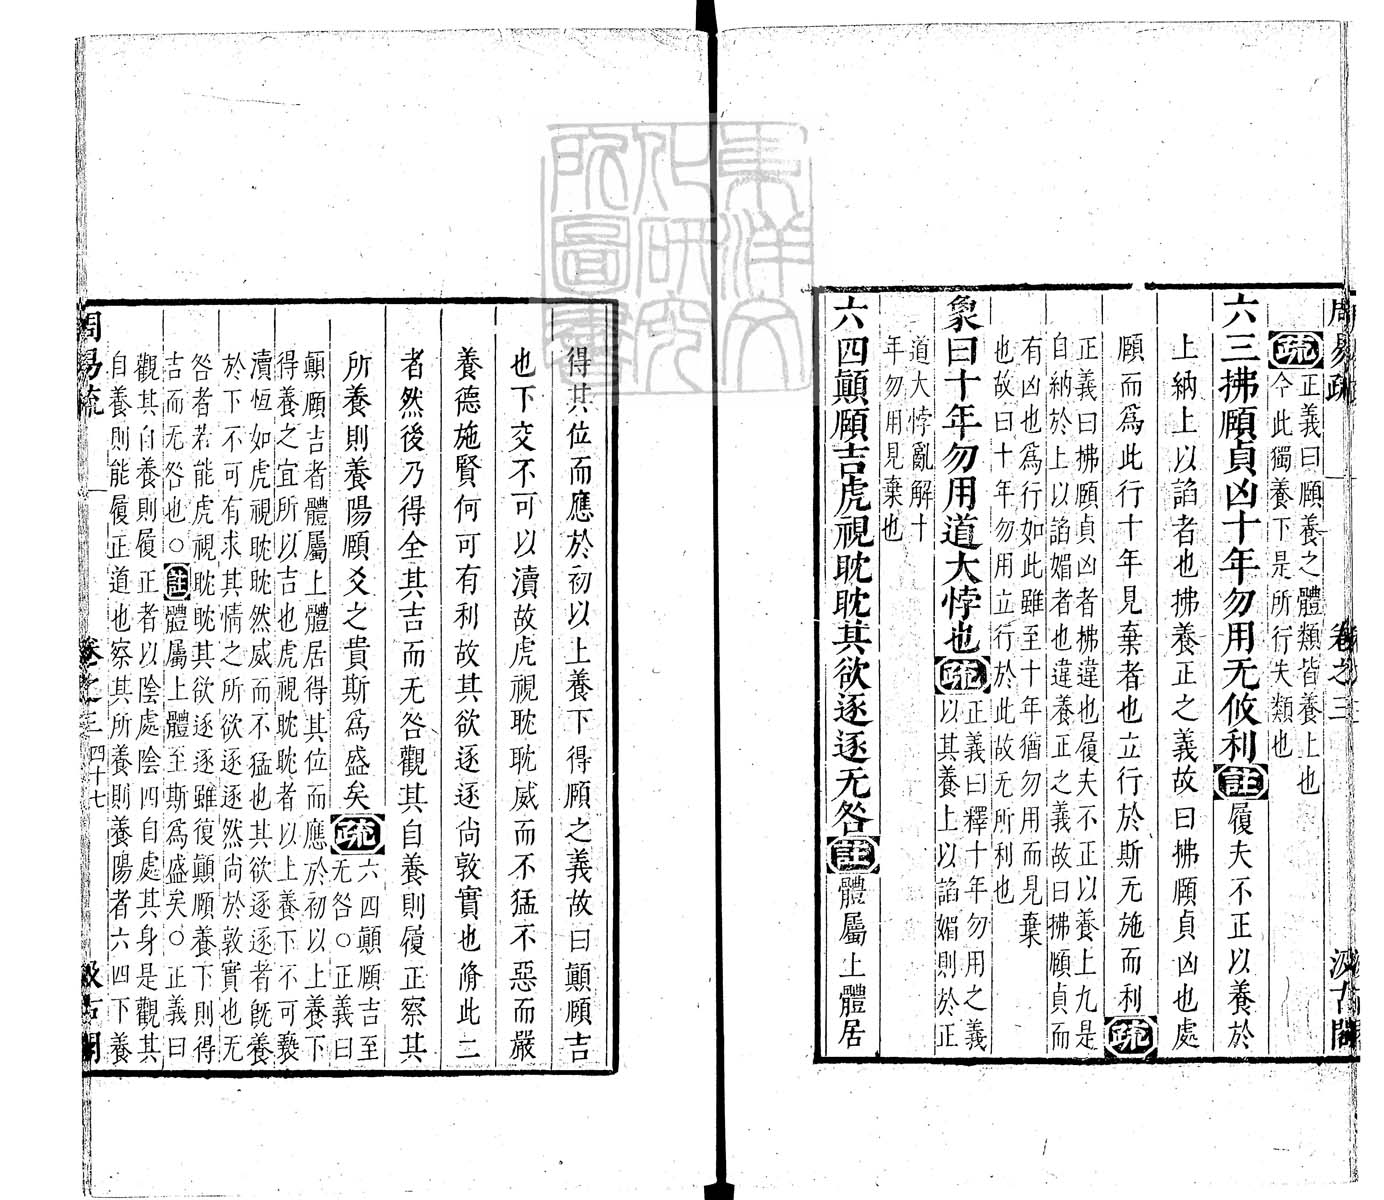 周易疏 卷之三 汲古閣
疏 正義曰頤養之體類皆養上也
今此獨養下是所行失類也
六三拂頤貞凶十年勿用无攸利 註 履夫不正以養於
上納上以諂者也拂養正之義故曰拂頤貞凶也處
頤而爲此行十年見棄者也立行於斯无施而利 疏
正義曰拂頤貞凶者拂違也履夫不正以養上九是
自納於上以諂媚者也違養正之義故曰拂頤貞而
有凶也爲行如此雖至十年猶勿用而見棄
也故曰十年勿用立行於此故无所利也
象曰十年勿用道大悖也 疏 正義曰釋十年勿用之義
以其養上以諂媚則於正
道大悖亂解十
年勿用見棄也
六四顚頤吉虎視耽耽其欲逐逐无咎 註 體屬上體居
得其位而應於初以上養下得頤之義故曰顚頤吉
也下交不可以瀆故虎視耽耽威而不猛不惡而嚴
養德施賢何可有利故其欲逐逐尙敦實也脩此二
者然後乃得全其吉而无咎觀其自養則履正察其
所養則養陽頤爻之貴斯爲盛矣 疏 六四顚頤吉至
无咎○正義曰
顚頤吉者體屬上體居得其位而應於初以上養下
得養之宜所以吉也虎視耽耽者以上養下不可褻
瀆恆如虎視耽耽然威而不猛也其欲逐逐者旣養
於下不可有求其情之所欲逐逐然尚於敦實也无
咎者若能虎視耽耽其欲逐逐雖復顚頤養下則得
吉而无咎也○ 註 體屬上體至斯爲盛矣○正義曰
觀其自養則履正者以陰處陰四自處其身是觀其
自養則能履正道也察其所養則養陽者六四下養
周易疏 卷之三 四十七 汲古閣
東洋文
化研究
所圖書